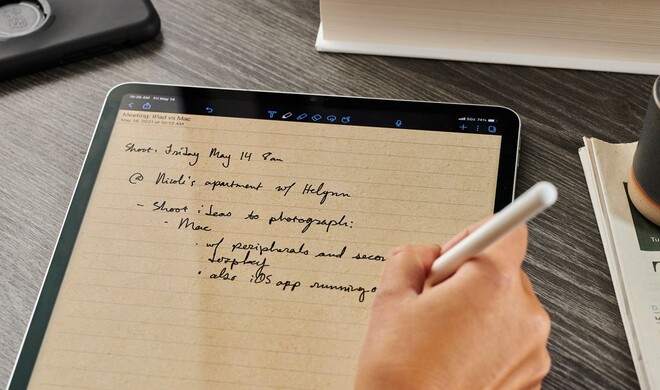 10:36 AM Fri May 14
5GE 74%
Meeting: iPad vs Mac
May 14, 2021 at 10:12 AM
Shoot: Friday May 14 8am
@ Nicole's apartment w/ Helynn
- Shoot ideas to photograph:
- Mac
• w/ peripherals and secon
display
• also iOS app running o